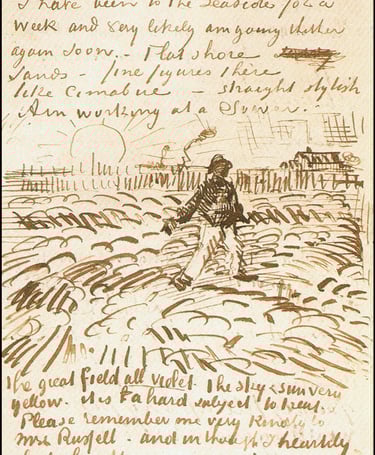 I have been to the seaside for a
week and very likely am going thither
again soon. - Flat shore
sands - fine figures there
like Cimabue - straight stylish
Am working at a Sower.
the great field all violet the sky & sun very
yellow. it is a hard subject to treat.
Please remember me very kindly to
mrs Russell - and in thought I heartily